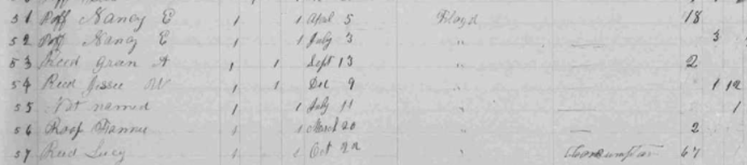 51 Poff Nancy E 1 1 April 5 Floyd 18
52 Poff Nancy E 1 1 July 3 " 3
53 Reed A 1 1 Sept 13 " — 2
54 Reed Jessee W 1 1 Dec 9 " — 1 12
55 Not named 1 1 July 11 " — 1
56 Roop Fannie 1 1 March 20 " — 2
57 Reed Lucy 1 1 Oct 22 " Consumption 67